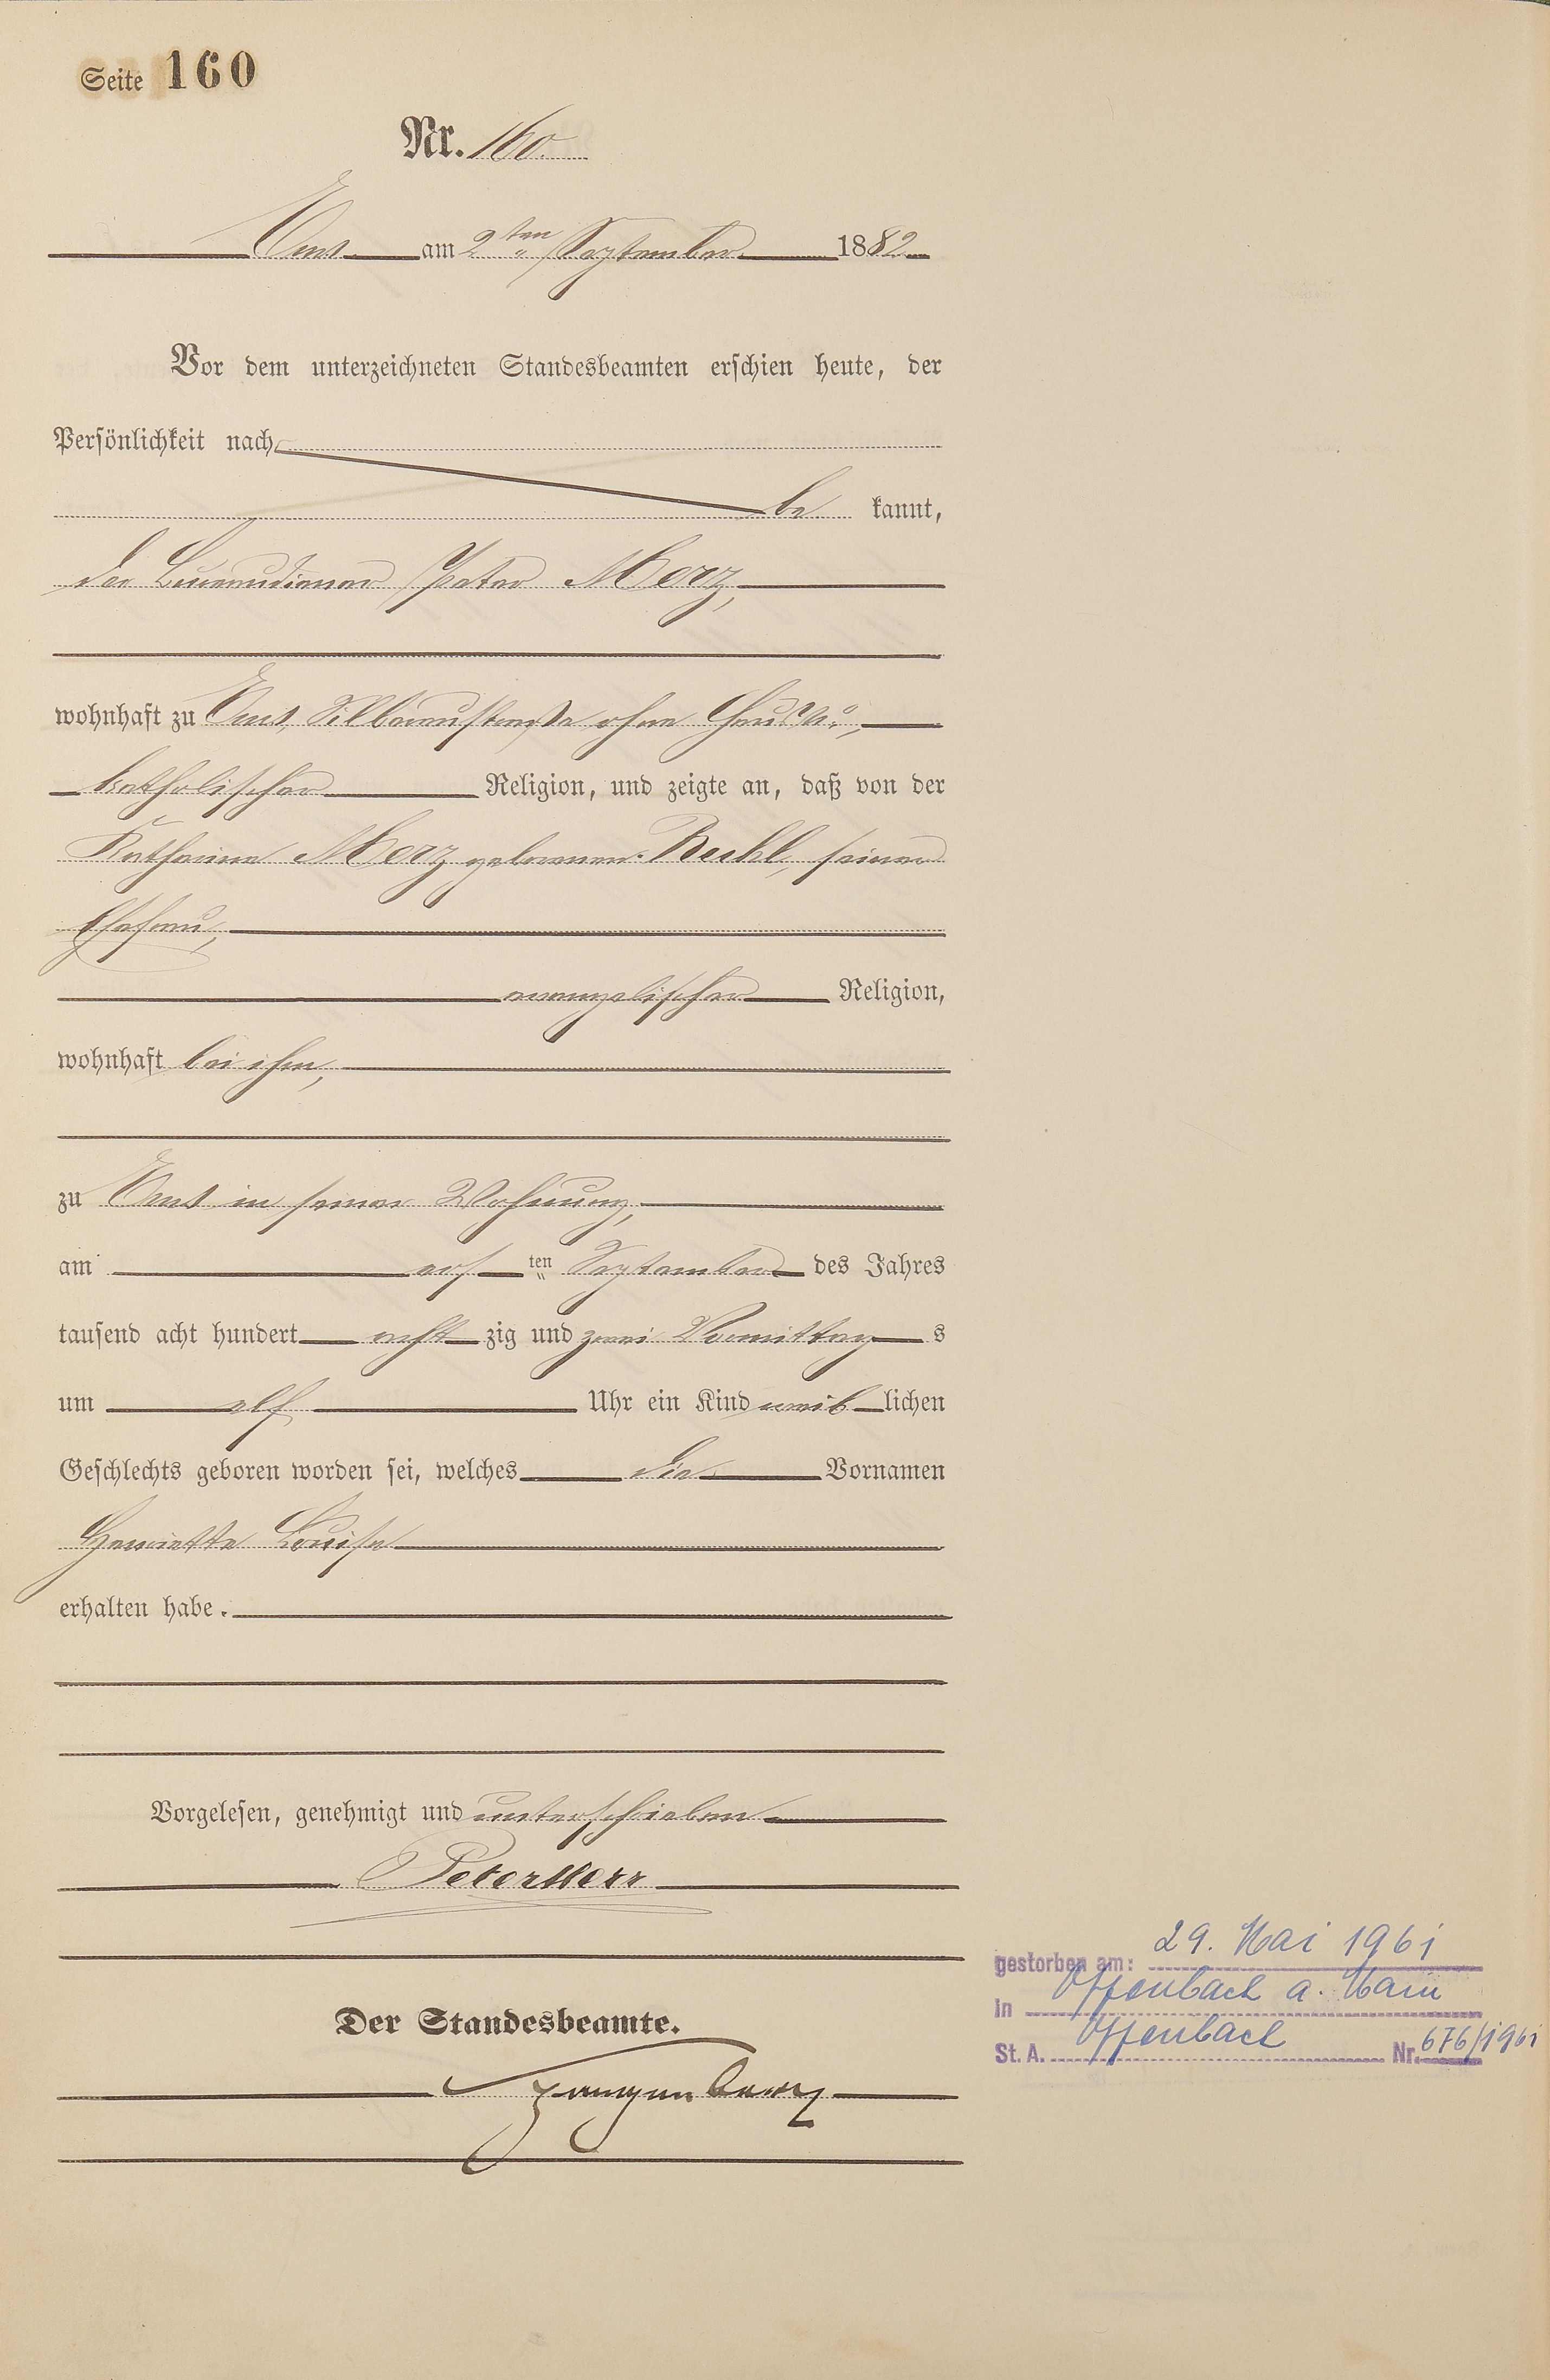 Seite 160
Nr. 160.
Ems am 2ten September 1882
Vor dem unterzeichneten Standesbeamten erschien heute, der
Persönlichkeit nach
be kannt,
der Bureaudiener Peter Merz,
wohnhaft zu Ems, Silberaustraße ohne Haus No,
katholischer Religion, und zeigte an, daß von der
Katharina Merz geborenen Buhl, seiner
Ehefrau,
evangelischer Religion,
wohnhaft bei ihm,
zu Ems in seiner Wohnung,
am ersten September des Jahres
tausend acht hundert acht zig und zwei Vormittag s
um elf Uhr ein Kind weib lichen
Geschlechts geboren worden sei, welches die Vornamen
Henriette Louise
erhalten habe.
Vorgelesen, genehmigt und unterschrieben
Peter Merz
Der Standesbeamte.
gestorben am: 29. Mai 1961
in Offenbach a. Main
St. A. Offenbach Nr. 676/1961